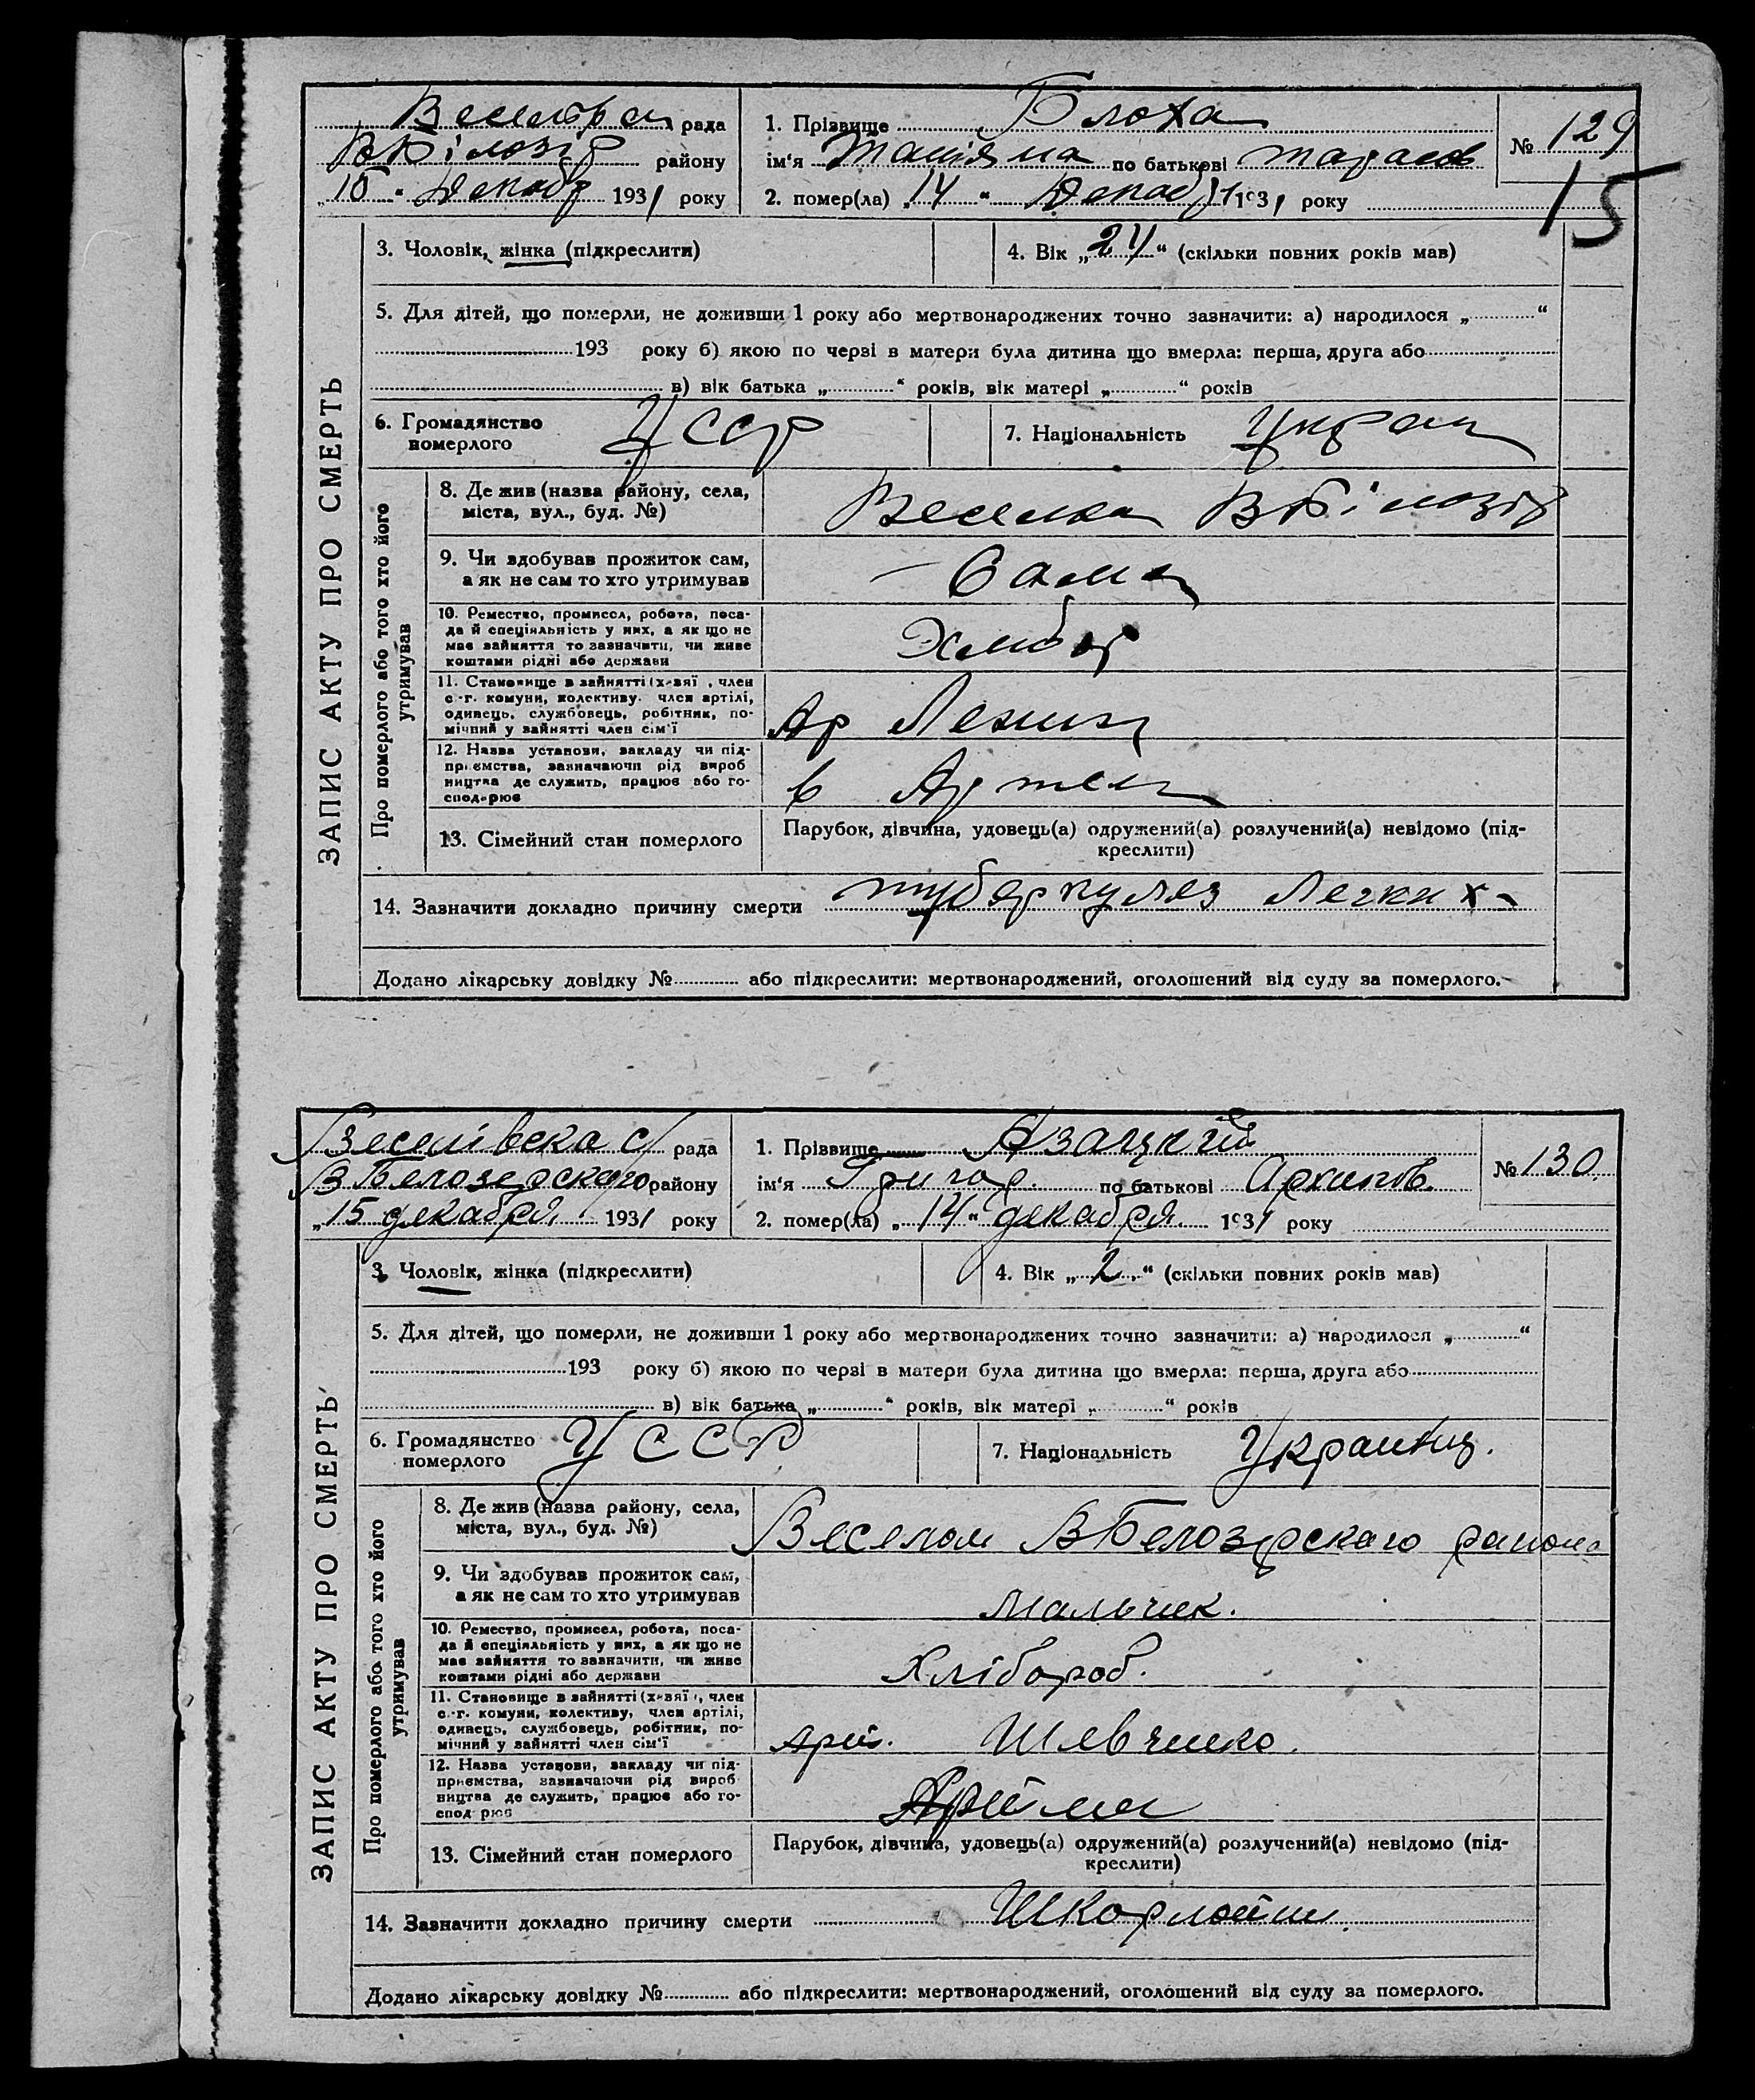 рада 1. Прізвище Блоха
ВБілозір району ім'я по батькові Тарасов № 129
„15“ Декабр 1931 року 2. помер(ла) „14“ Декабр 1931 року 15
3. Чоловік, жінка (підкреслити) 4. Вік „24“ (скільки повних років мав)
5. Для дітей, що померли, не доживши 1 року або мертвонароджених точно зазначити: а) народилося „ “
193 року б) якою по черзі в матери була дитина що вмерла: перша, друга або
в) вік батька „ “ років, вік матері „ “ років
6. Громадянство УССР 7. Національність Украи
померлого
ЗАПИС АКТУ ПРО СМЕРТЬ
Про померлого або того хто його
утримував
8. Де жив (назва району, села,
міста, вул., буд. №) ВБілозір
9. Чи здобував прожиток сам,
а як не сам то хто утримував Сама
10. Ремество, промисел, робота, поса-
да й спеціяльність у них, а як що не
має зайняття то зазначити, чи живе
коштами рідні або держави
11. Становище в зайнятті (х-вяї , член
с.-г. комуни, колективу. член артілі,
одинець, службовець, робітник, по-
мічний у зайнятті член сім'ї Ар Ленин
12. Назва установи, закладу чи під-
приємства, зазначаючи рід вироб
ництва де служить, працює або го-
сподарює в Артел
13. Сімейний стан померлого Парубок, дівчина, удовець(а) одружений(а) розлучений(а) невідомо (під-
креслити)
14. Зазначити докладно причину смерти туберкулез Легких
Додано лікарську довідку № або підкреслити: мертвонароджений, оголошений від суду за померлого.
Веселівска с/ рада 1. Прізвище Язацкий
ВБелозерского району ім'я Григор. по батькові Архипов. № 130.
„15 декабря 1931 року 2. помер(ла) „14“ декабря 1931 року
3. Чоловік, жінка (підкреслити) 4. Вік „2.“ (скільки повних років мав)
5. Для дітей, що померли, не доживши 1 року або мертвонароджених точно зазначити: а) народилося „ “
193 року б) якою по черзі в матери була дитина що вмерла: перша, друга або
в) вік батька „ “ років, вік матері „ “ років
6. Громадянство УССР 7. Національність Украинц.
померлого
ЗАПИС АКТУ ПРО СМЕРТЬ
Про померлого або того хто його
утримував
8. Де жив (назва району, села,
міста, вул., буд. №) Веселом ВБелозерскаго района
9. Чи здобував прожиток сам,
а як не сам то хто утримував Мальчик.
10. Ремество, промисел, робота, поса-
да й спеціяльність у них, а як що не
має зайняття то зазначити, чи живе
коштами рідні або держави Хлібороб.
11. Становище в зайнятті (х-вяї , член
с.-г. комуни, колективу, член артілі,
одинець, службовець, робітник, по-
мічний у зайнятті член сім'ї Шевченко.
12. Назва установи, закладу чи під-
приємства, зазначаючи рід вироб-
ництва де служить, працює або го-
спод рює
13. Сімейний стан померлого Парубок, дівчина, удовець(а) одружений(а) розлучений(а) невідомо (під-
креслити)
14. Зазначити докладно причину смерти Шкорлатин.
Додано лікарську довідку № або підкреслити: мертвонароджений, оголошений від суду за померлого.